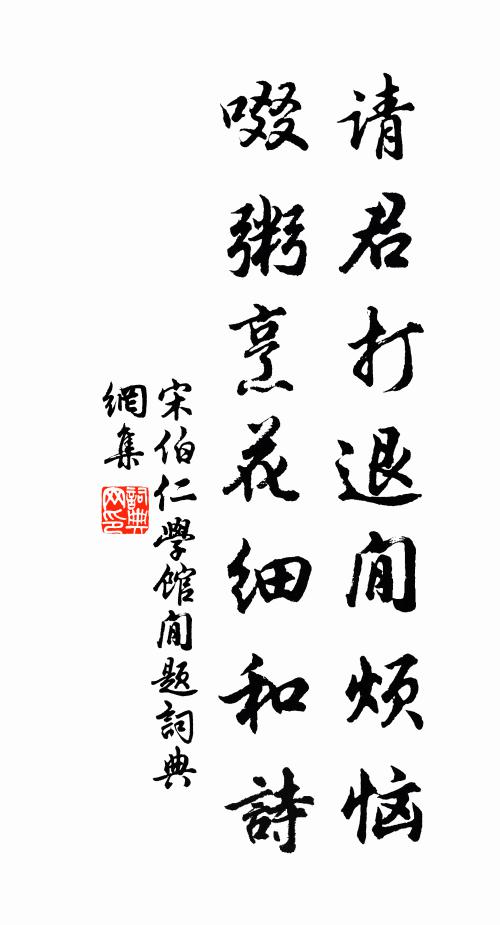 请君打退閒烦恼
啜粥烹花细和詩
宋伯仁學馆閒题詞典
網集
詞典网印